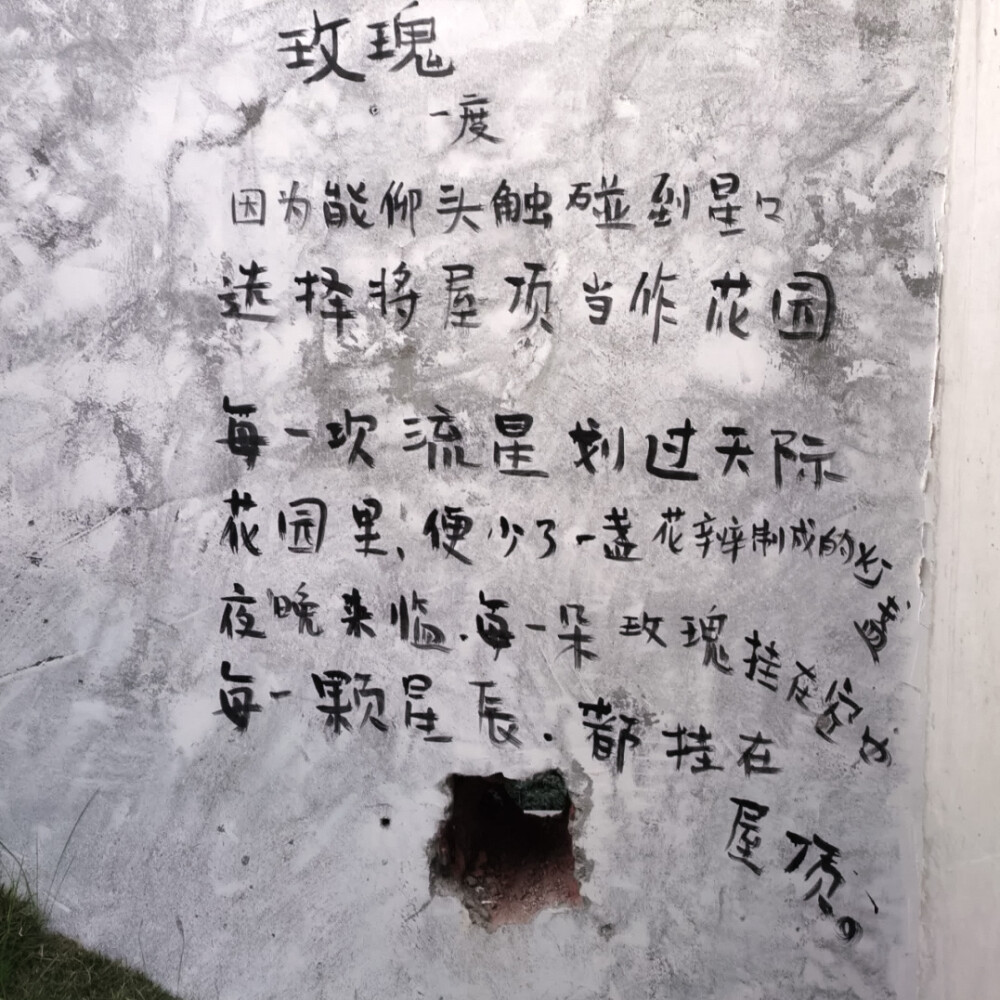 玫瑰
一度
因为能仰头触碰到星
选择将屋顶当作花园
每一次流星划过天际
花园里、便少了一盏花瓣制成的灯盏
夜晚来临.每一朵玫瑰挂在窗外
每一颗星辰.都挂在
屋顶。